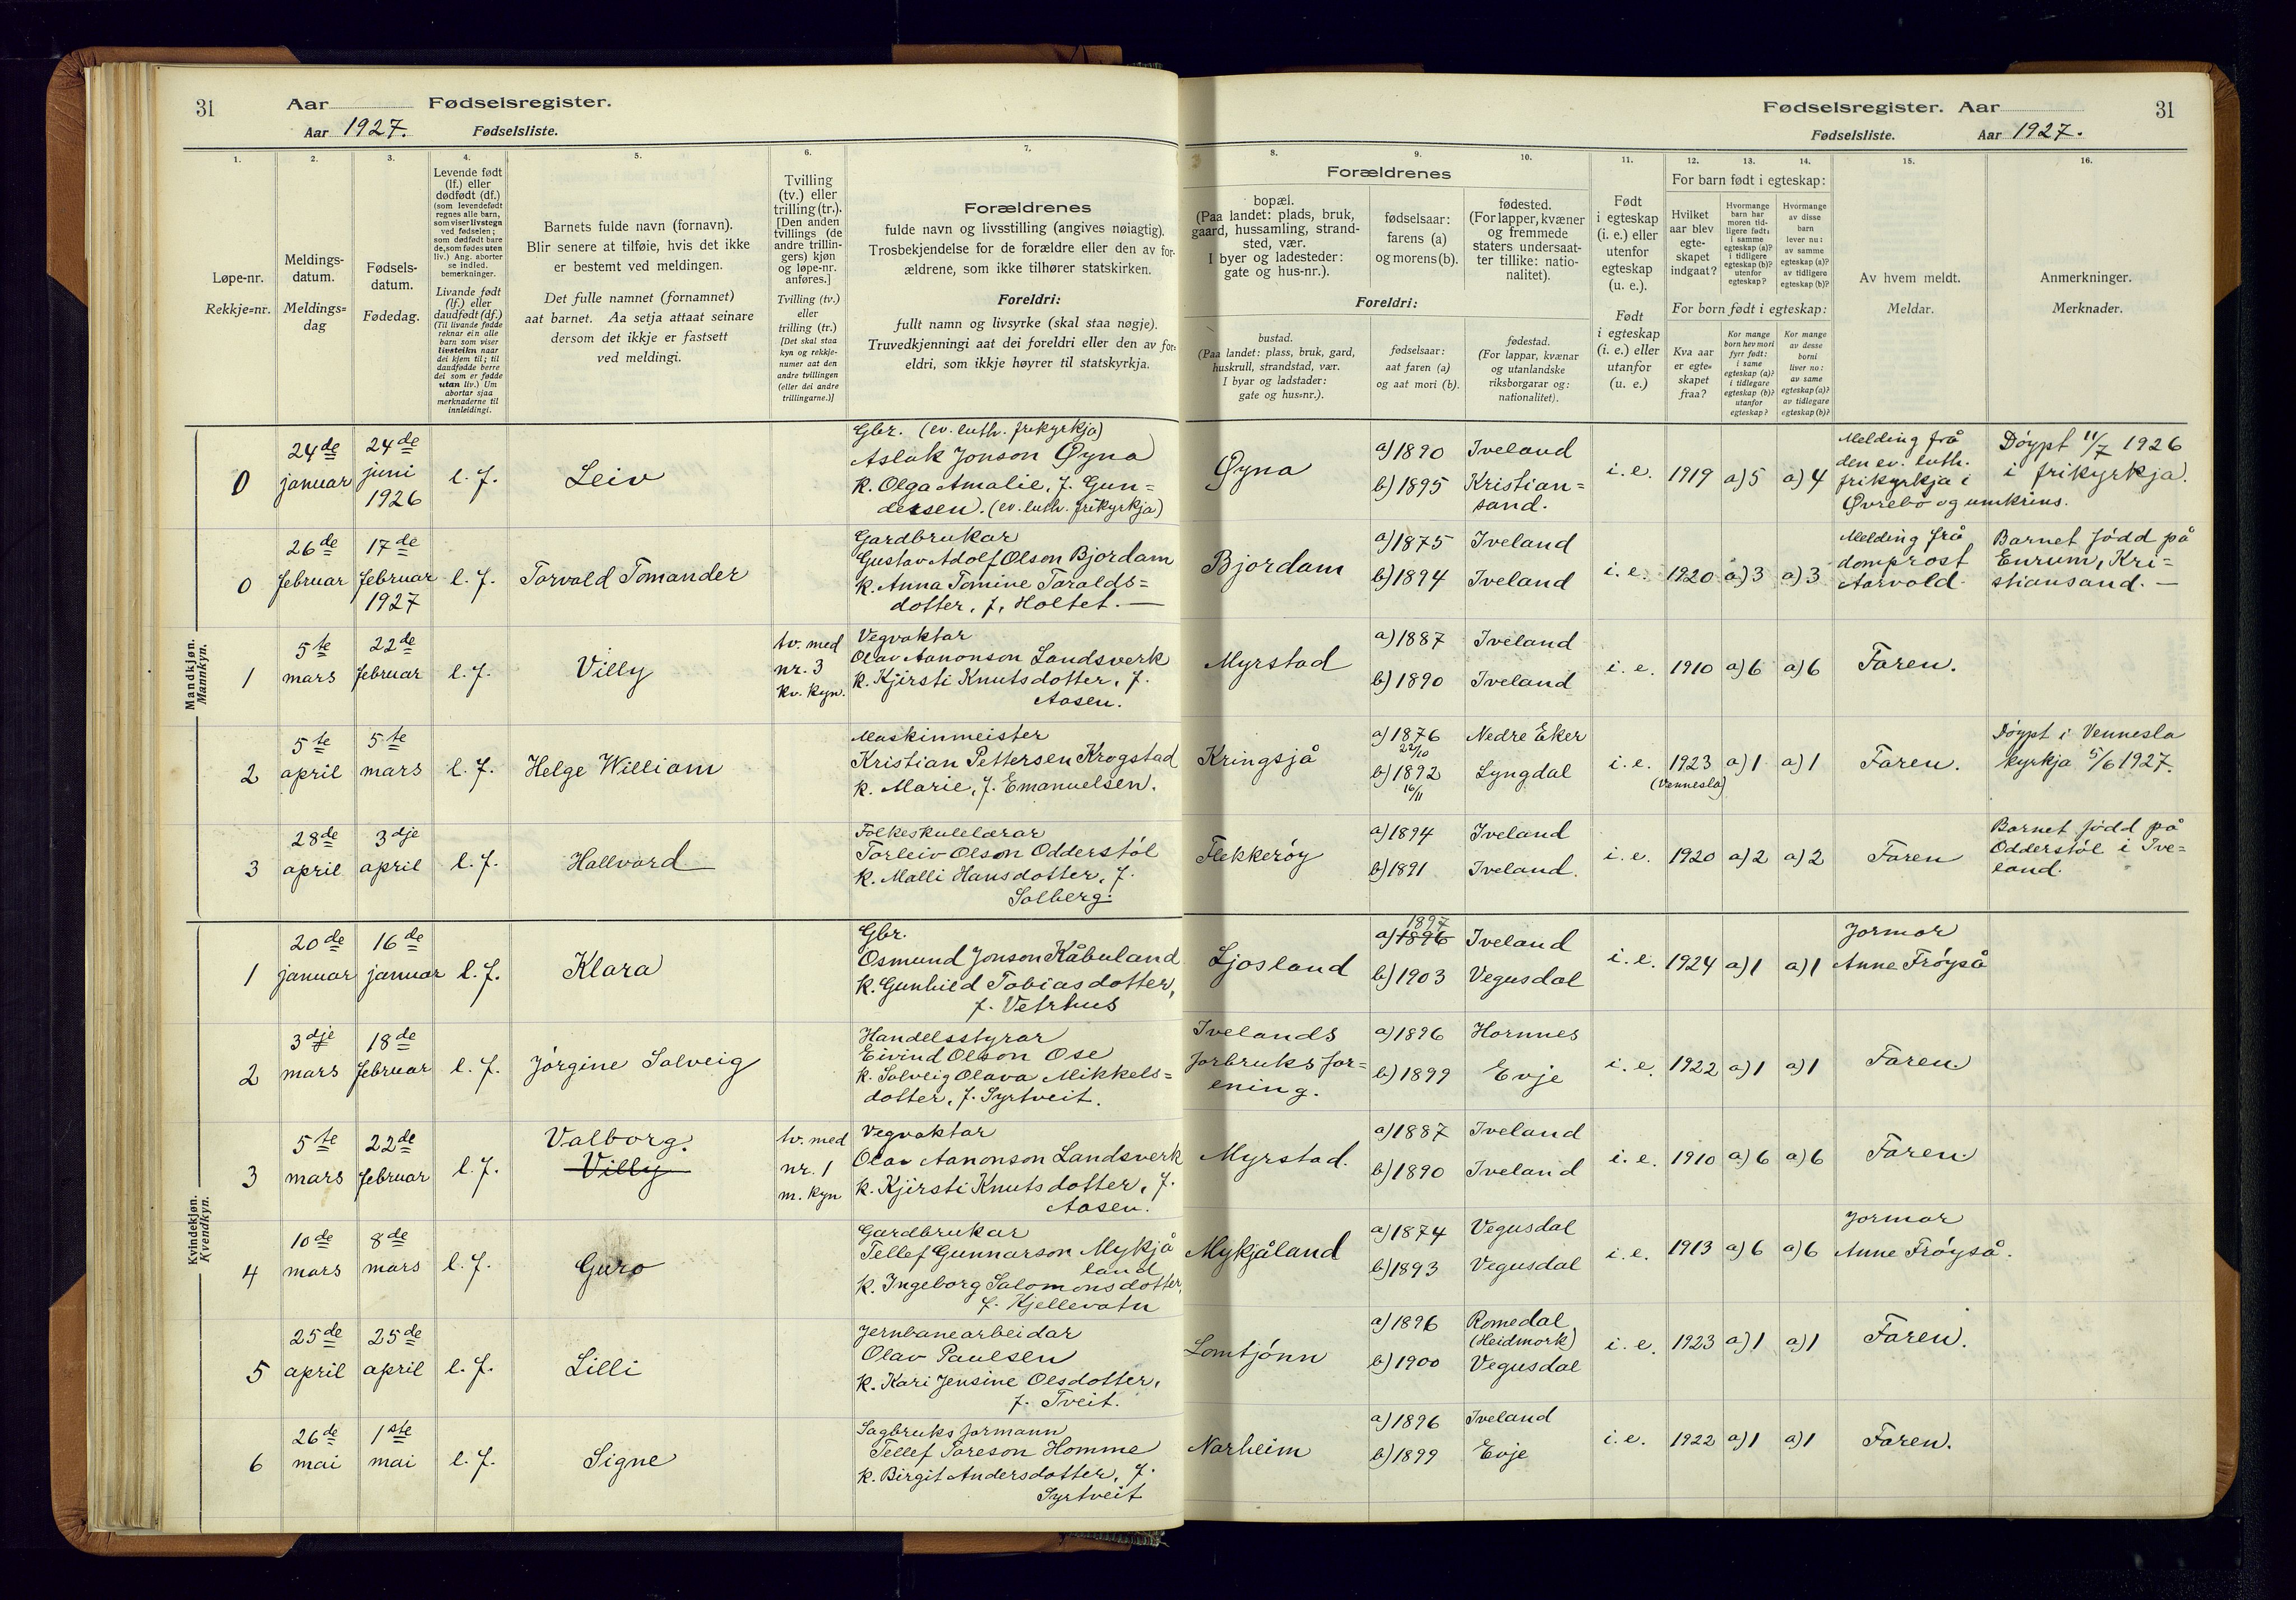 31
Aar Fødselsregister.
Aar 1927. Fødselsliste.
1.
Løpe-nr.
Rekkje=nr.
2.
Meldings-
datum.
Meldings=
dag
3.
Fødsels-
datum.
Fødedag.
4.
Levende født
(lf.) eller
dødfødt (df.)
(som levendefødt
regnes alle barn,
som viser livstegn
ved fødselen;
som dødfødt bare
de, som fødes uten
liv.) Ang. aborter
se indled.
bemerkninger.
Livande født
(lf.) eller
daudfødt (df.)
(Til livande fødde
reknar ein alle
barn som viser
livsteikn naar
dei kjem til; til
daudfødde berre
dei som er fødde
utan liv.) Um
abortar sjaa
merknaderne til
innleidingi.
5.
Barnets fulde navn (fornavn).
Blir senere at tilføie, hvis det ikke
er bestemt ved meldingen.
Det fulle namnet (fornamnet)
aat barnet. Aa setja attaat seinare
dersom det ikkje er fastsett
ved meldingi.
6.
Tvilling
(tv.) eller
trilling (tr.).
[Den anden
tvillings (de
andre trillin-
gers) kjøn
og løpe-nr.
anføres.]
Tvilling (tv.)
eller
trilling (tr.)
[Det skal staa
kyn og rekkje-
numer aat den
andre tvillingen
(eller dei andre
trillingarne.)]
7.
Forældrenes
fulde navn og livsstilling (angives nøiagtig).
Trosbekjendelse for de forældre eller den av for-
ældrene, som ikke tilhører statskirken.
Foreldri:
fullt namn og livsyrke (skal staa nøgje).
Truvedkjenningi aat dei foreldri eller den av for=
eldri, som ikkje høyrer til statskyrkja.
Fødselsregister. Aar
31
Fødselsliste. Aar 1927.
Forældrenes
8.
bopæl.
(Paa landet: plads, bruk,
gaard, hussamling, strand-
sted, vær.
I byer og ladesteder:
gate og hus-nr.).
9.
fødselsaar:
farens (a)
og morens (b).
10.
fødested.
(For lapper, kvæner
og fremmede
staters undersaat-
ter tillike: natio-
nalitet).
Foreldri:
bustad.
(Paa landet: plass, bruk, gard,
huskrull, strandstad, vær.
I byar og ladstader:
gate og hus=nr.).
fødselsaar:
aat faren (a)
og aat mori (b).
fødestad.
(For lappar, kvænar
og utanlandske
riksborgarar og:
nationalitet).
11.
Født
i egteskap
(i. e.) eller
utenfor
egteskap
(u. e.).
Født
i egteskap
(i. e.) eller
utanfor
(u. e.)
For barn født i egteskap:
12.
Hvilket
aar blev
egte-
skapet
indgaat?
13.
Hvormange
barn har
moren tid-
ligere født:
i samme
egteskap (a)?
i tidligere
egteskap (b)?
utenfor
egteskap?
14.
Hvormange
av disse
barn
lever nu:
av samme
egteskap (a)?
av tidligere
egteskap (b)?
For born født i egteskap:
Kva aar
er egte=
skapet
fraa?
Kor mange
born hev mori
fyrr født:
i same
egteskap (a)?
i tidlegare
egteskap (b)?
utanfor
egteskap?
Kor mange
av desse
borni
liver no:
av same
egteskap (a)?
av tidlegare
egteskap (b)?
15.
Av hvem meldt.
Meldar.
16.
Anmerkninger.
Merknader.
Mandkjøn.
Mannkyn.
0
24de januar
24de juni 1926
l. f.
Leiv
Gbr. (ev. luth. frikyrkja)
Aslak Jonson Øyna
k. Olga Amalie, f. Gun=
dersen. (ev. luth. frikyrkja)
Øyna
a) 1890 Iveland
b) 1895 Kristian=
sand.
i. e. 1919 a) 5 a) 4
Melding frå
den ev. luth.
frikyrkja i
Øvrebø og umkrins.
Døypt 11/7 1926
i frikyrkja.
0
26de februar
17de februar 1927
l. f.
Torvald Tomander
Gardbrukar
Gustav Adolf Olson Bjordam
k. Anna Tomine Taralds=
dotter, f. Holtet. —
Bjordam
a) 1875 Iveland
b) 1894 Iveland
i. e. 1920 a) 3 a) 3
Melding frå
domprost
Aarvold.
Barnet fødd på
Enrum, Kri=
stiansand. —
1
5te mars
22de februar
l. f.
Villy
tv. med
nr. 3
kv. kyn.
Vegvaktar
Olav Aanonson Landsverk
k. Kjirsti Knutsdotter, f.
Aasen.
Myrstad
a) 1887 Iveland
b) 1890 Iveland
i. e. 1910 a) 6 a) 6
Faren.
2
5te april
5te mars
l. f.
Helge William
Maskinmeister
Kristian Pettersen Krogstad
k. Marie, f. Emanuelsen.
Kringsjå
a) 1876 Nedre Eker
22/10
b) 1892 Lyngdal
16/11
i. e. 1923 a) 1 a) 1
(Vennesla)
Faren.
Døypt i Vennesla
kyrkja 5/6 1927.
3
28de april
3dje april
l. f.
Hallvard
Folkeskulelærar
Torleiv Olson Odderstøl
k. Malli Hansdotter, f.
Solberg.
Flekkerøy
a) 1894 Iveland
b) 1891 Iveland.
i. e. 1920 a) 2 a) 2
Faren
Barnet fødd på
Odderstøl i Ive=
land.
Kvindekjøn.
Kvendkyn.
1
20de januar
16de januar
l. f.
Klara
Gbr.
Osmund Jonson Kåbuland
k. Gunhild Tobiasdotter,
f. Vetrhus
Ljosland
1897
a) 1896 Iveland
b) 1903 Vegusdal
i. e. 1924 a) 1 a) 1
Jormor
Anne Frøyså
2
3dje mars
18de februar
l. f.
Jørgine Solveig
Handelsstyrar
Eivind Olson Ose
k. Solveig Olava Mikkels=
dotter, f. Syrtveit.
Ivelands
forbruksfor=
ening.
a) 1896 Hornnes
b) 1899 Evje
i. e. 1922 a) 1 a) 1
Faren.
3
5te mars
22de februar
l. f.
Valborg.
Villy
tv. med
nr. 1
m. kyn
Vegvaktar
Olav Aanonson Landsverk
k. Kjirsti Knutsdotter, f.
Aasen.
Myrstad.
a) 1887 Iveland
b) 1890 Iveland
i. e. 1910 a) 6 a) 6
Faren.
4
10de mars
8de mars
l. f.
Guro
Gardbrukar
Tellef Gunnarson Mykjå
land
k. Ingeborg Salomonsdotter,
f. Kjellevatn
Mykjåland
a) 1874 Vegusdal
b) 1893 Vegusdal
i. e. 1913 a) 6 a) 6
Jormor
Anne Frøyså.
5
25de april
25de april
l. f.
Lilli
Jernbanearbeidar
Olav Paulsen
k. Kari Jensine Olsdotter,
f. Tveit.
Lomtjønn
a) 1896 Romedal
(Heidmork)
b) 1900 Vegusdal
i. e. 1923 a) 1 a) 1
Faren.
6
26de mai
1ste mai
l. f.
Signe
Sagbruksformann
Tellef Toreson Homme
k. Birgit Andersdotter, f.
Syrtveit
Norheim
a) 1896 Iveland
b) 1899 Evje
i. e. 1922 a) 1 a) 1
Faren.